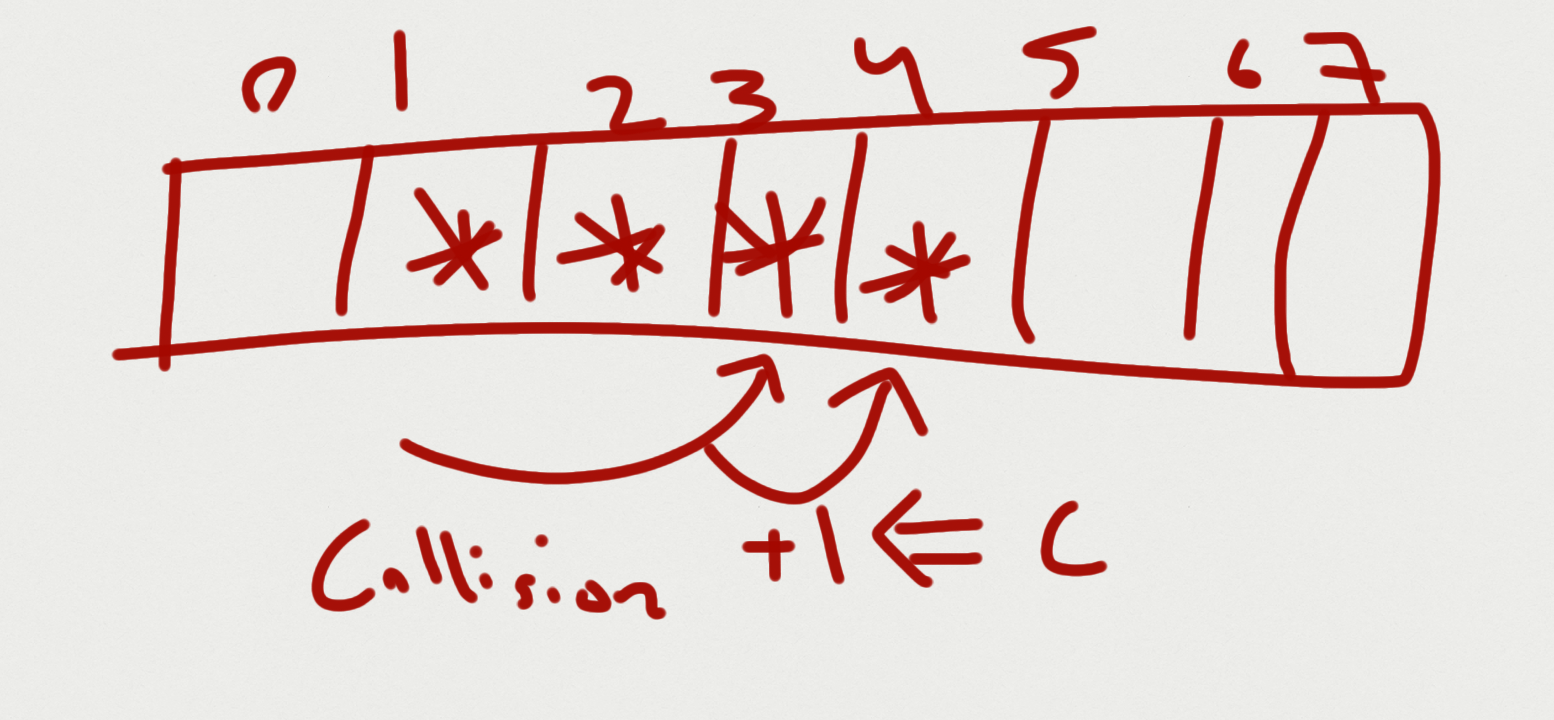 0 1 2 3 4 5 6 7
* * * *
Collision +1 ⇐ C